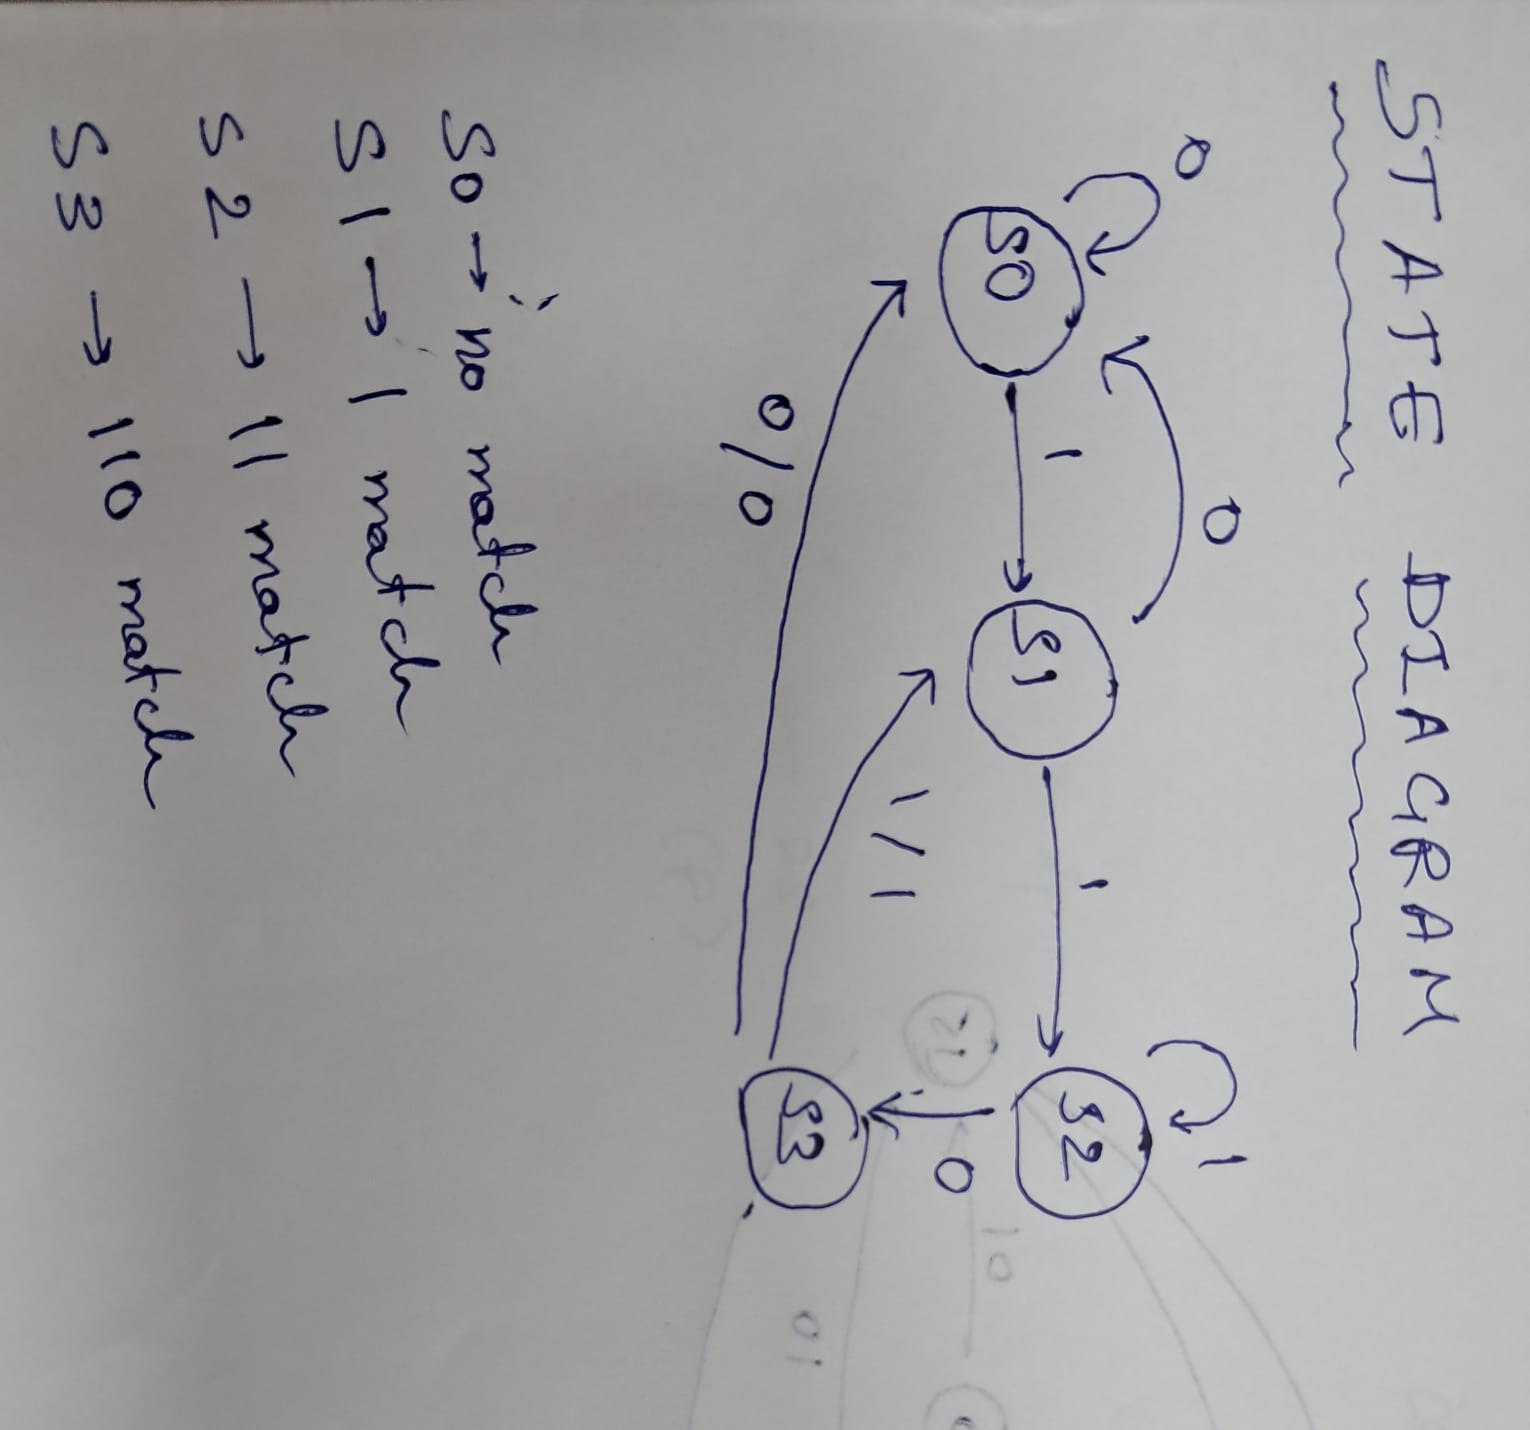 STATE DIAGRAM
0
0
1
S0
1
1
S1
S2
1/1
0
0/0
S3
S0 → no match
S1 → 1 match
S2 → 11 match
S3 → 110 match